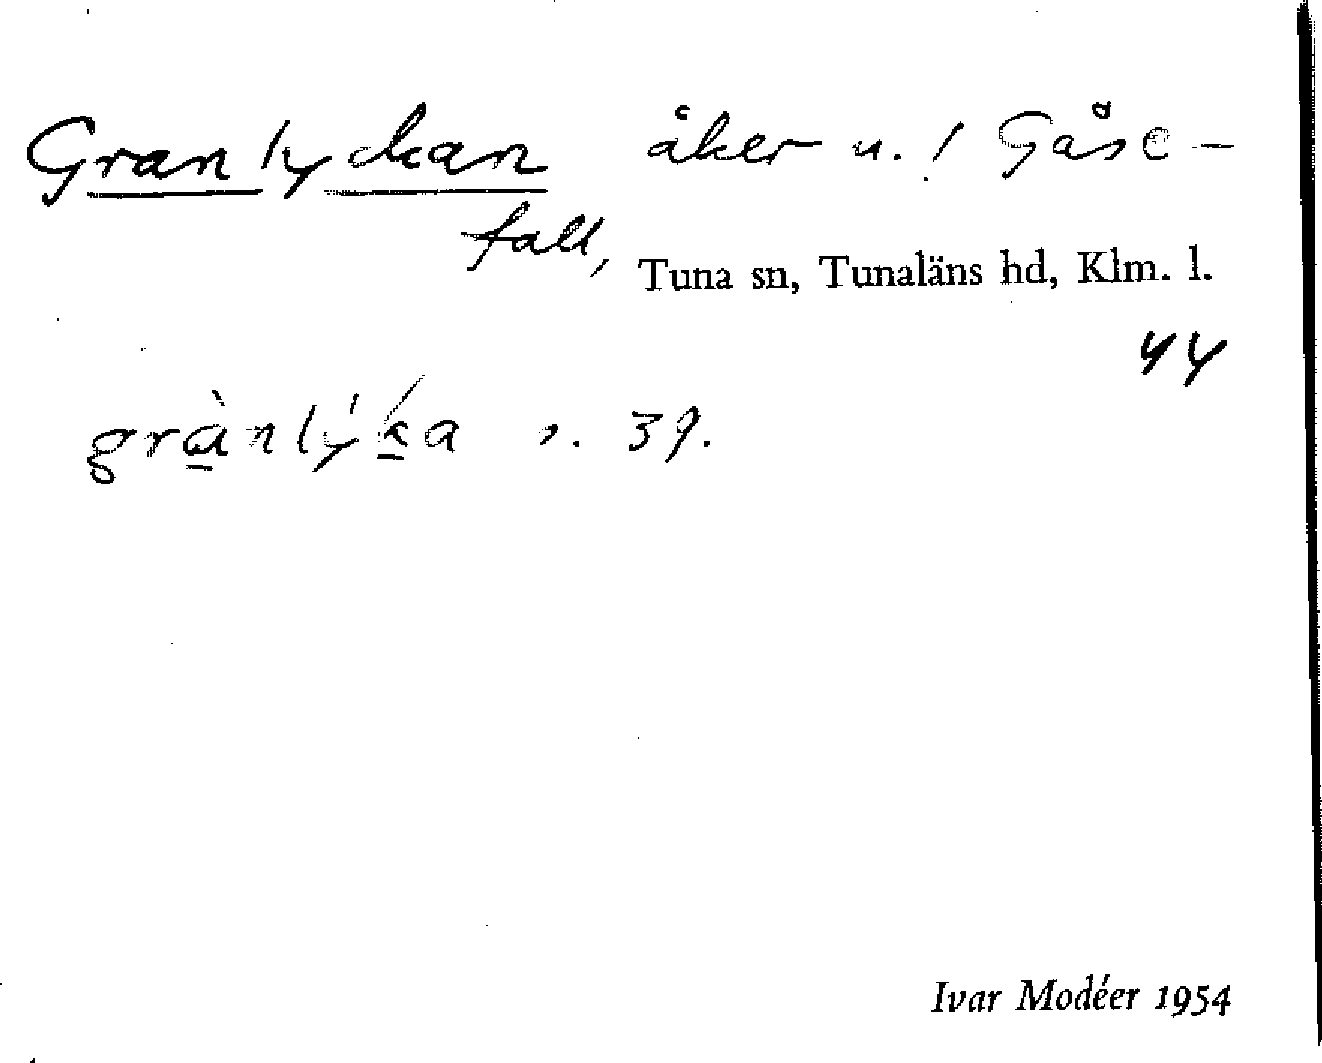 Granlyckan åker u. ! Gåse-
fall, Tuna sn, Tunaläns hd, Klm. l.
44
grànlýḱa s. 39.
Ivar Modéer 1954